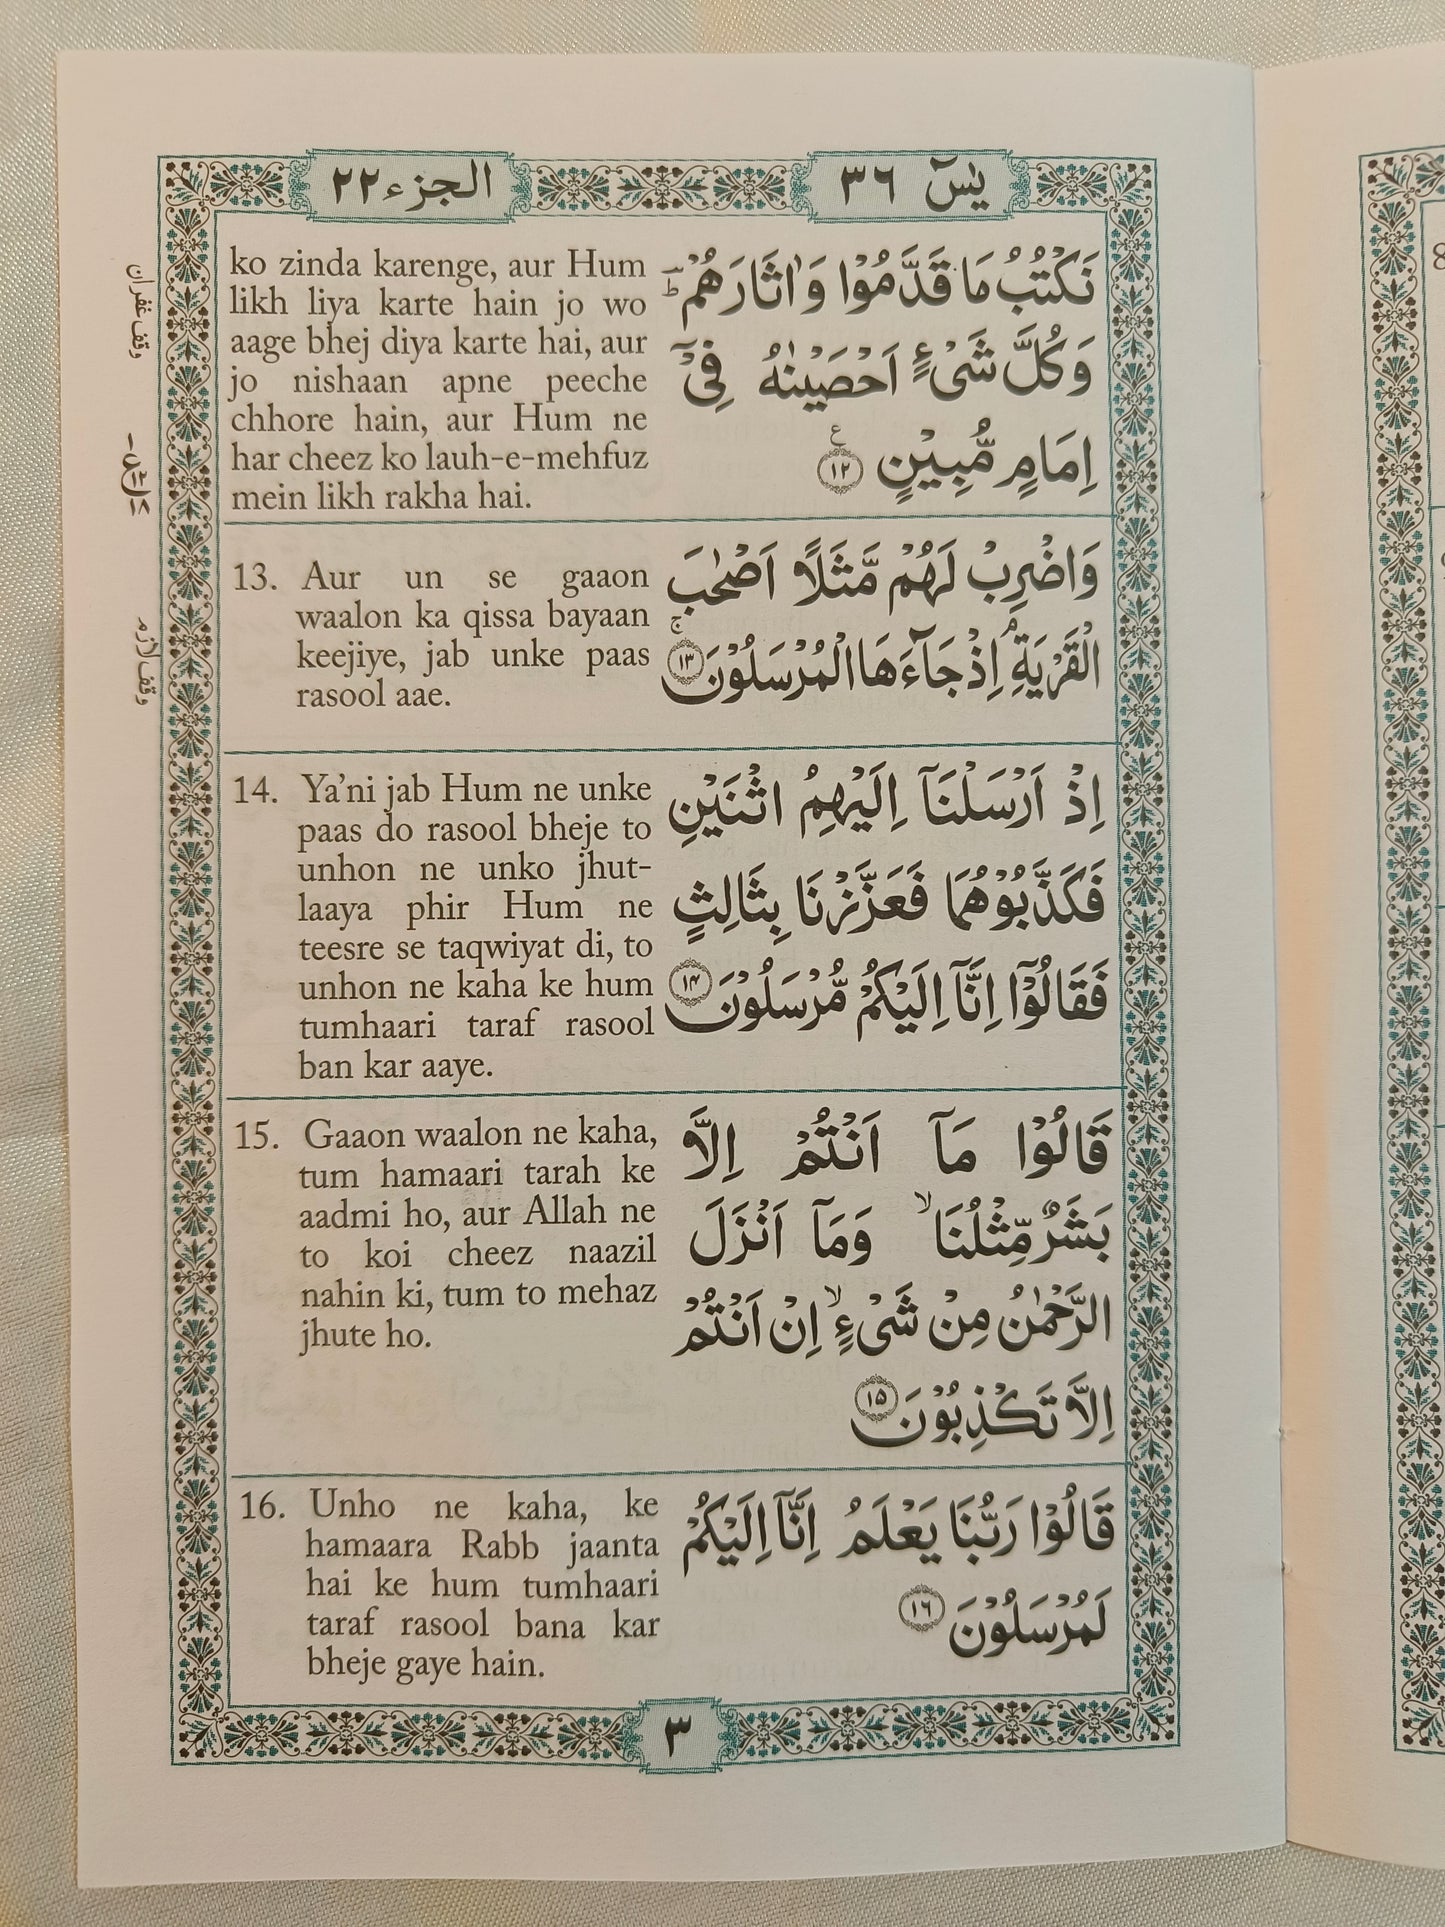 الجزء ٢٢
يٰسٓ ٣٦
ko zinda karenge, aur Hum
likh liya karte hain jo wo
aage bhej diya karte hai, aur
jo nishaan apne peeche
chhore hain, aur Hum ne
har cheez ko lauh-e-mehfuz
mein likh rakha hai.
نَكْتُبُ مَا قَدَّمُوْا وَاٰثَارَهُمْ ؕ
وَكُلَّ شَیْءٍ اَحْصَيْنٰهُ فِیْۤ
اِمَامٍ مُّبِيْنٍ ۧ ١٢
13. Aur un se gaaon
waalon ka qissa bayaan
keejiye, jab unke paas
rasool aae.
وَاضْرِبْ لَهُمْ مَّثَلًا اَصْحٰبَ
الْقَرْيَةِ ۘ اِذْ جَآءَهَا الْمُرْسَلُوْنَ ۚ ١٣
14. Ya’ni jab Hum ne unke
paas do rasool bheje to
unhon ne unko jhut-
laaya phir Hum ne
teesre se taqwiyat di, to
unhon ne kaha ke hum
tumhaari taraf rasool
ban kar aaye.
اِذْ اَرْسَلْنَاۤ اِلَيْهِمُ اثْنَيْنِ
فَكَذَّبُوْهُمَا فَعَزَّزْنَا بِثَالِثٍ
فَقَالُوْۤا اِنَّاۤ اِلَيْكُمْ مُّرْسَلُوْنَ ١٤
15. Gaaon waalon ne kaha,
tum hamaari tarah ke
aadmi ho, aur Allah ne
to koi cheez naazil
nahin ki, tum to mehaz
jhute ho.
قَالُوْا مَاۤ اَنْتُمْ اِلَّا
بَشَرٌ مِّثْلُنَا ۙ وَمَاۤ اَنْزَلَ
الرَّحْمٰنُ مِنْ شَیْءٍ ۙ اِنْ اَنْتُمْ
اِلَّا تَكْذِبُوْنَ ١٥
16. Unho ne kaha, ke
hamaara Rabb jaanta
hai ke hum tumhaari
taraf rasool bana kar
bheje gaye hain.
قَالُوْا رَبُّنَا يَعْلَمُ اِنَّاۤ اِلَيْكُمْ
لَمُرْسَلُوْنَ ١٦
وقف غفران
وقف لازم
٣